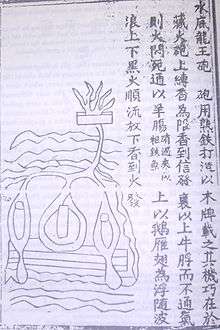 水底龍王砲 砲用熟鐵打造以木牌載之其機巧在於
藏火磁上縛香為限香到信發裹以上牛脬而不通氣
則火悶死通以羊腸上以鵝雁翅為浮隨波
浪上下黑火順流放下香到火發